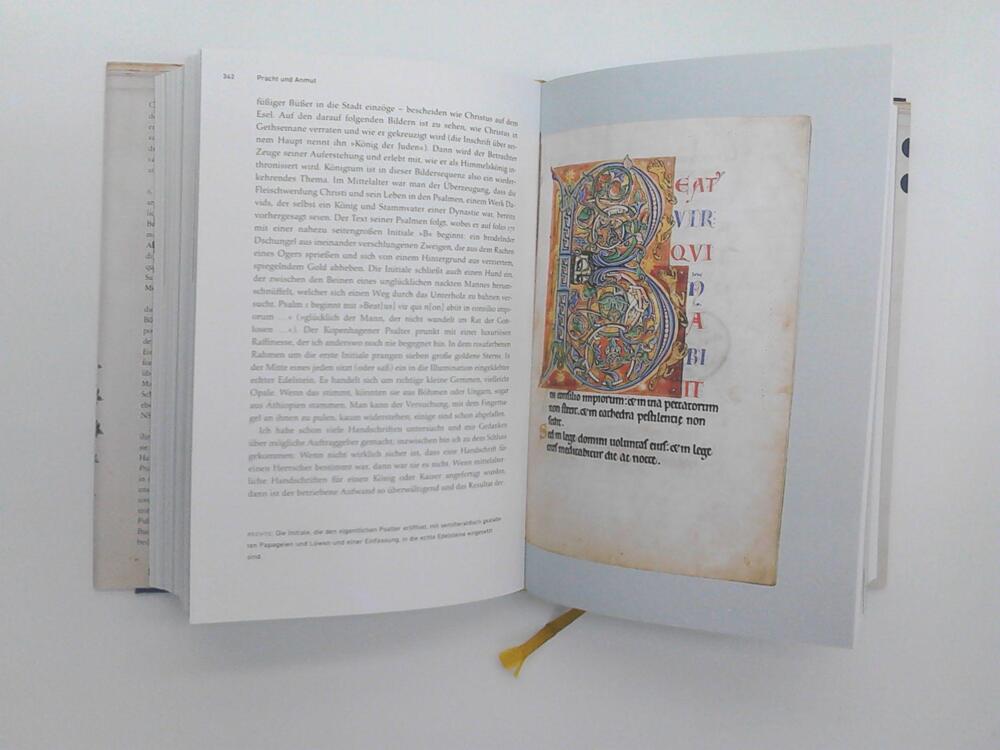 342 Pracht und Anmut
füßiger Büßer in die Stadt einzöge – bescheiden wie Christus auf dem
Esel. Auf den darauf folgenden Bildern ist zu sehen, wie Christus in
Gethsemane verraten und wie er gekreuzigt wird (die Inschrift über sei-
nem Haupt nennt ihn »König der Juden«). Dann wird der Betrachter
Zeuge seiner Auferstehung und erlebt mit, wie er als Himmelskönig in-
thronisiert wird. Königtum ist in dieser Bildersequenz also ein wieder-
kehrendes Thema. Im Mittelalter war man der Überzeugung, dass die
Fleischwerdung Christi und sein Leben in den Psalmen, einem Werk Da-
vids, der selbst ein König und Stammvater einer Dynastie war, bereits
vorhergesagt seien. Der Text seiner Psalmen folgt, wobei es auf folio 17r
mit einer nahezu seitengroßen Initiale »B« beginnt: ein brodelnder
Dschungel aus ineinander verschlungenen Zweigen, die aus dem Rachen
eines Ogers sprießen und sich von einem Hintergrund aus verziertem,
spiegelndem Gold abheben. Die Initiale schließt auch einen Hund ein,
der zwischen den Beinen eines unglücklichen nackten Mannes herum-
schnüffelt, welcher sich einen Weg durch das Unterholz zu bahnen ver-
sucht. Psalm 1 beginnt mit »Beat[us] vir qui n[on] abiit in consilio impi-
orum …« (»glücklich der Mann, der nicht wandelt im Rat der Gott-
losen …«). Der Kopenhagener Psalter prunkt mit einer luxuriösen
Raffinesse, der ich anderswo noch nie begegnet bin. In dem rosafarbenen
Rahmen um die erste Initiale prangen sieben große goldene Sterne. In
der Mitte eines jeden sitzt (oder saß) ein in die Illumination eingeklebter
echter Edelstein. Es handelt sich um richtige kleine Gemmen, vielleicht
Opale. Wenn das stimmt, könnten sie aus Böhmen oder Ungarn, sogar
aus Äthiopien stammen. Man kann der Versuchung, mit dem Fingerna-
gel an ihnen zu pulen, kaum widerstehen; einige sind schon abgefallen.
Ich habe schon viele Handschriften untersucht und mir Gedanken
über mögliche Auftraggeber gemacht; inzwischen bin ich zu dem Schluss
gekommen: Wenn nicht wirklich sicher ist, dass eine Handschrift für
einen Herrscher bestimmt war, dann war sie es nicht. Wenn mittelalter-
liche Handschriften für einen König oder Kaiser angefertigt wurden,
dann ist der betriebene Aufwand so überwältigend und das Resultat der-
RECHTS: Die Initiale, die den eigentlichen Psalter eröffnet, mit
ten Papageien und Löwen und einer Einfassung, in die echte Edelsteine eingesetzt
sind.
B EAT
VIR
QVI
N
A
BI
IT
in consilio impiorum: & in uia peccatorum
non stetit. & in cathedra pestilencie non
sedit.
Sed in lege domini uoluntas eius: & in lege
eius meditabitur die ac nocte.